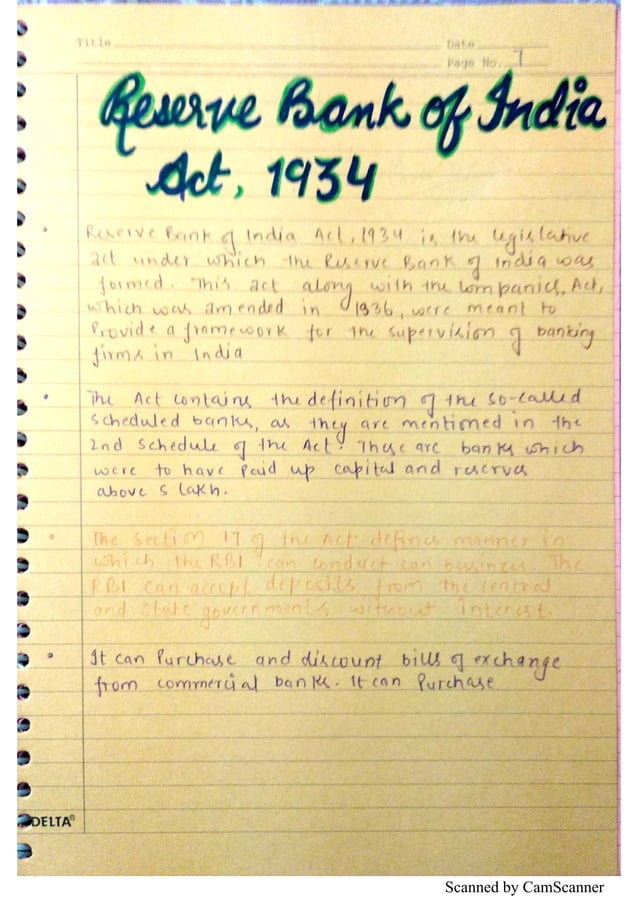 Title
Date
Page No. 1
Reserve Bank of India
Act, 1934
Reserve Bank of India Act, 1934 is the legislative
act under which the Reserve Bank of India was
formed. This act along with the Companies, Act,
which was amended in 1936, were meant to
Provide a framework for the supervision of banking
firms in India
The Act contains the definition of the so-called
scheduled banks, as they are mentioned in the
2nd Schedule of the Act. These are banks which
were to have Paid up capital and reserves
above 5 lakh.
The Section 17 of the Act defines manner in
which the RBI can conduct can business. The
RBI can accept deposits from the central
and State governments without interest.
It can Purchase and discount bills of exchange
from commercial banks. It can Purchase
DELTA®
Scanned by CamScanner